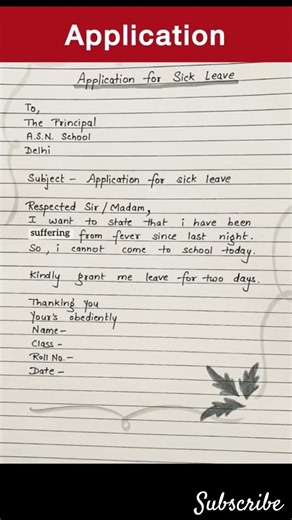 Application
Application for Sick Leave
To,
The Principal
A.S.N. School
Delhi
Subject - Application for sick leave
Respected Sir/Madam,
I want to state that i have been
suffering from fever since last night.
So, i cannot come to school today.
Kindly grant me leave for two days.
Thanking You
Your's obediently
Name-
Class-
Roll No.-
Date-
Subscribe